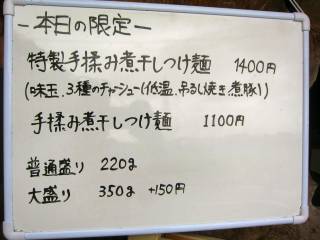 -本日の限定-
特製手揉み煮干しつけ麺 1400円
(味玉、3種のチャーシュー(低温、吊るし焼き、煮豚))
手揉み煮干しつけ麺 1100円
普通盛り 220g
大盛り 350g +150円